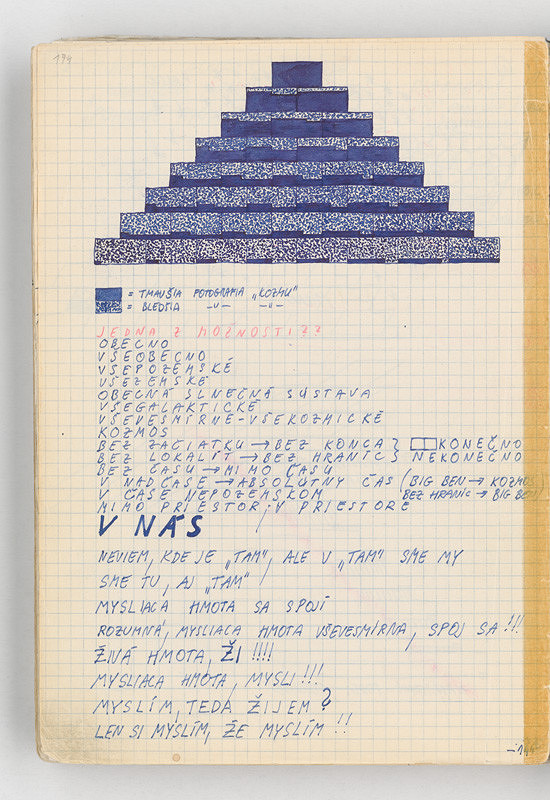 194
= TMAVŠIA FOTOGRAFIA „KOZMU"
= BLEDŠIA —„— —„—
JEDNA Z MOŽNOSTÍ??
OBECNO
VŠEOBECNO
VŠEPOZEMSKÉ
VŠEZEMSKÉ
OBECNÁ SLNEČNÁ SÚSTAVA
VŠEGALAKTICKÉ
VŠEVESMÍRNE-VŠEKOZMICKÉ
KOZMOS
BEZ ZAČIATKU → BEZ KONCA } KONEČNO
BEZ LOKALÍT → BEZ HRANÍC } NEKONEČNO
BEZ ČASU → MIMO ČASU
V NADČASE → ABSOLÚTNY ČAS (BIG BEN → KOZMOS
V ČASE NEPOZEMSKOM BEZ HRANÍC → BIG BEN)
MIMO PRIESTOR, V PRIESTORE
V NÁS
NEVIEM, KDE JE „TAM", ALE V „TAM" SME MY
SME TU, AJ „TAM"
MYSLIACA HMOTA SA SPOJÍ
ROZUMNÁ, MYSLIACA HMOTA VŠEVESMÍRNA, SPOJ SA!!!
ŽIVÁ HMOTA, ŽI !!!!
MYSLIACA HMOTA, MYSLI!!!
MYSLÍM, TEDA ŽIJEM?
LEN SI MYSLÍM, ŽE MYSLÍM!!